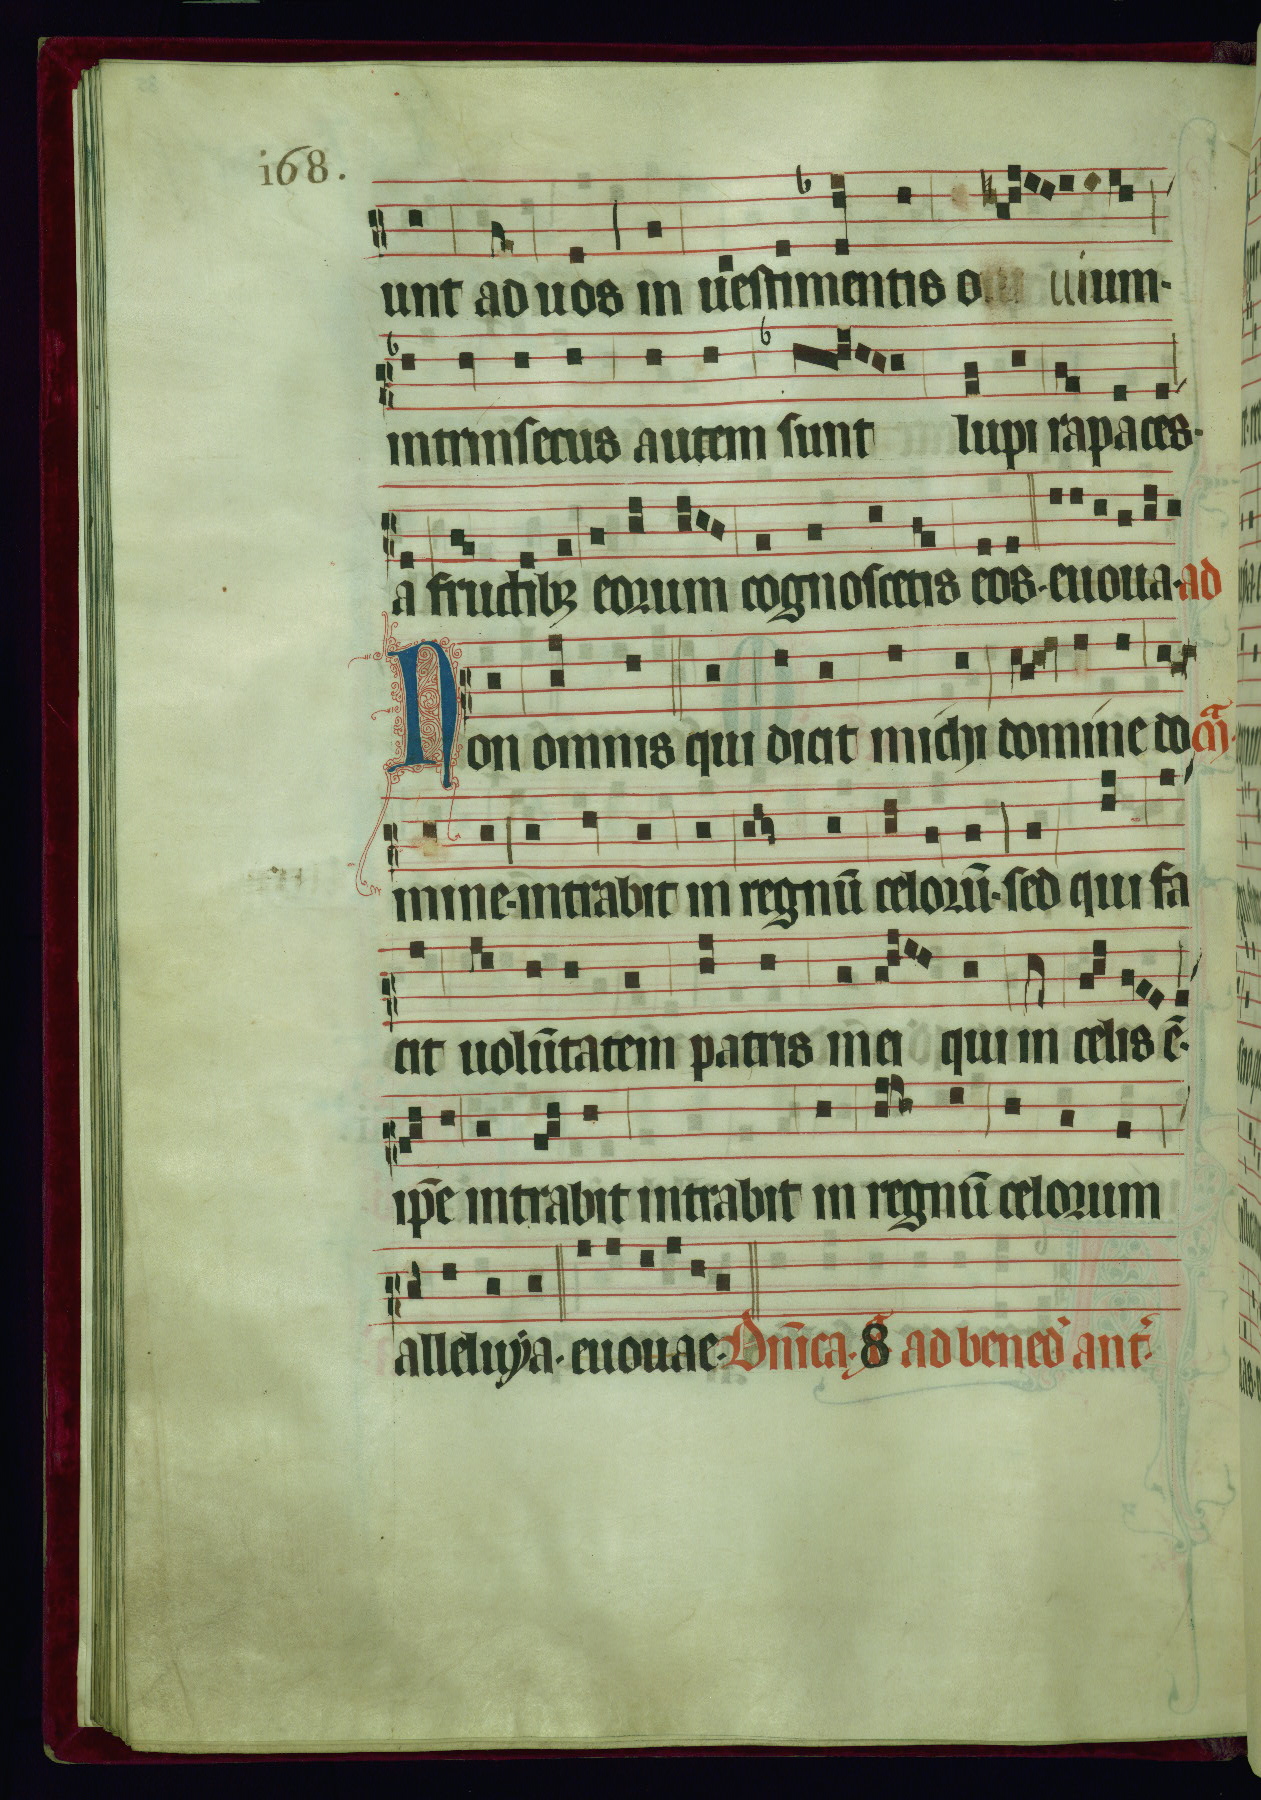 i68.
unt ad uos in uestimentis o uium·
intrinsecus autem sunt lupi rapaces·
a fructibꝫ eorum cognoscetis eos·euoua·ad
Non omnis qui dicit michi domine do
mine·intrabit in regnū celorū·sed qui fa
cit uolūtatem patris mei qui in celis ē·
ip̄e intrabit intrabit in regnū celorum
alleluya·euouae·Dn̄ica·8 ad bened̄ ant̄·